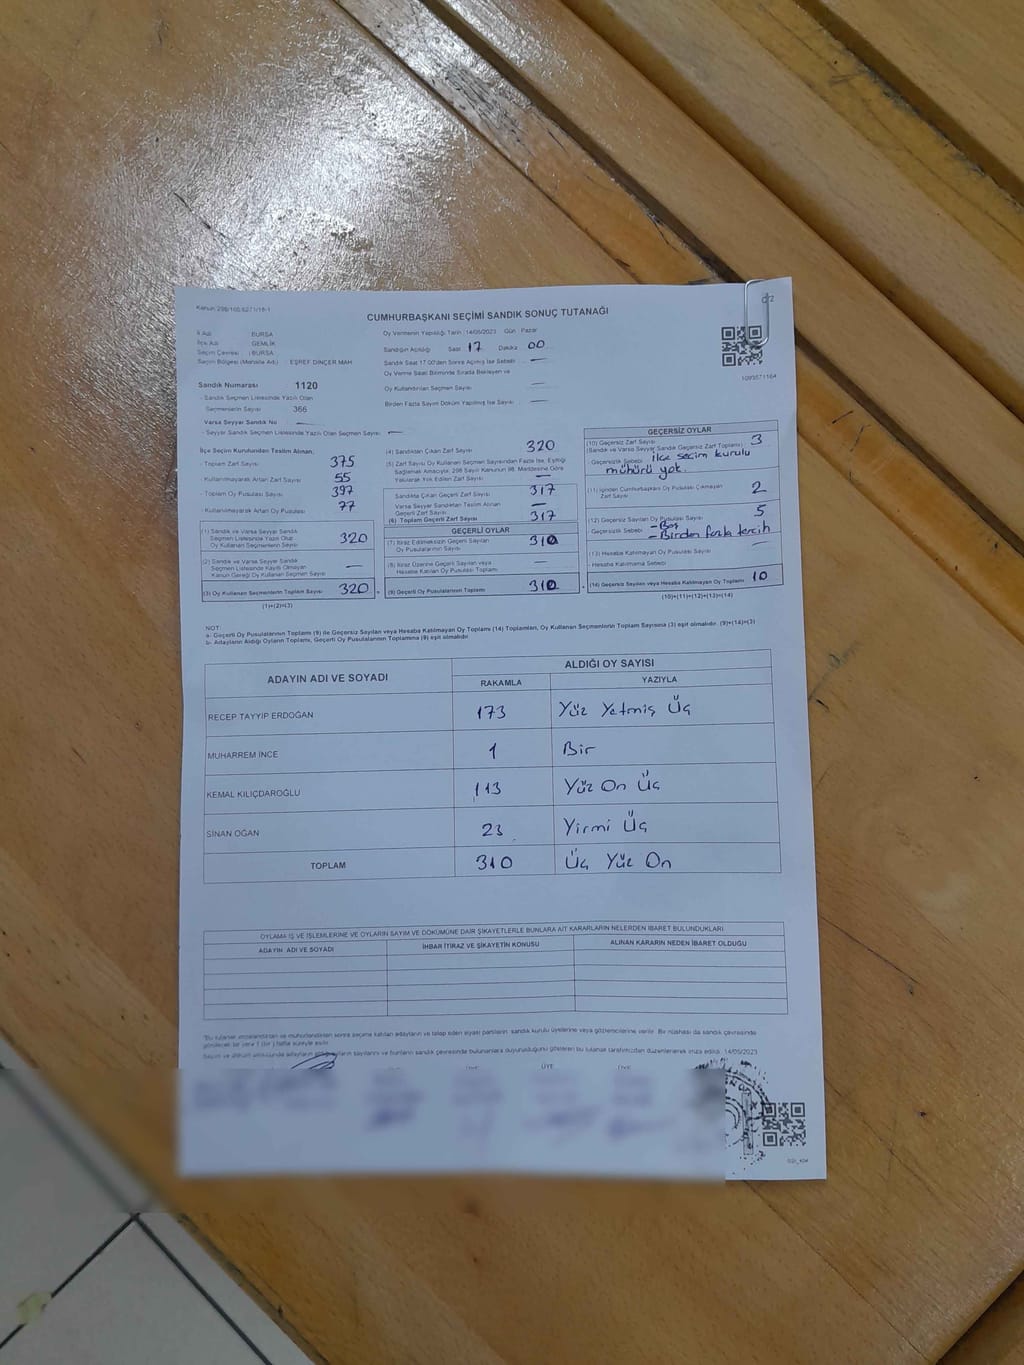 Kanun: 298/105,6271/16-1
CUMHURBAŞKANI SEÇİMİ SANDIK SONUÇ TUTANAĞI
İl Adı : BURSA
İlçe Adı : GEMLİK
Seçim Çevresi : BURSA
Seçim Bölgesi (Mahalle Adı) : EŞREF DİNÇER MAH
Oy Vermenin Yapıldığı Tarih : 14/05/2023 Gün : Pazar
Sandığın Açıldığı Saat : 17 Dakika : 00
Sandık Saat 17.00'den Sonra Açılmış İse Sebebi : —
Oy Verme Saati Bitiminde Sırada Bekleyen ve
Oy Kullandırılan Seçmen Sayısı : —
Birden Fazla Sayım Döküm Yapılmış İse Sayısı : —
1093571164
Sandık Numarası 1120
- Sandık Seçmen Listesinde Yazılı Olan
Seçmenlerin Sayısı 366
Varsa Seyyar Sandık No —
- Seyyar Sandık Seçmen Listesinde Yazılı Olan Seçmen Sayısı : —
İlçe Seçim Kurulundan Teslim Alınan;
- Toplam Zarf Sayısı : 375
- Kullanılmayarak Artan Zarf Sayısı : 55
- Toplam Oy Pusulası Sayısı : 397
- Kullanılmayarak Artan Oy Pusulası : 77
(1) Sandık ve Varsa Seyyar Sandık
Seçmen Listesinde Yazılı Olup
Oy Kullanan Seçmenlerin Sayısı 320
(2) Sandık ve Varsa Seyyar Sandık
Seçmen Listesinde Kayıtlı Olmayan
Kanun Gereği Oy Kullanan Seçmen Sayısı —
(3) Oy Kullanan Seçmenlerin Toplam Sayısı 320
(1)+(2)=(3)
(4) Sandıktan Çıkan Zarf Sayısı 320
(5) Zarf Sayısı Oy Kullanan Seçmen Sayısından Fazla İse, Eşitliği
Sağlamak Amacıyla, 298 Sayılı Kanunun 98. Maddesine Göre
Yakılarak Yok Edilen Zarf Sayısı —
Sandıkta Çıkan Geçerli Zarf Sayısı 317
Varsa Seyyar Sandıktan Teslim Alınan
Geçerli Zarf Sayısı —
(6) Toplam Geçerli Zarf Sayısı 317
GEÇERLİ OYLAR
(7) İtiraz Edilmeksizin Geçerli Sayılan
Oy Pusulalarının Sayısı 310
(8) İtiraz Üzerine Geçerli Sayılan veya
Hesaba Katılan Oy Pusulası Toplamı —
(9) Geçerli Oy Pusulalarının Toplamı 310
GEÇERSİZ OYLAR
(10) Geçersiz Zarf Sayısı 3
(Sandık ve Varsa Seyyar Sandık Geçersiz Zarf Toplamı)
- Geçersizlik Sebebi : ilçe seçim kurulu
mührü yok.
(11) İçinden Cumhurbaşkanı Oy Pusulası Çıkmayan
Zarf Sayısı 2
(12) Geçersiz Sayılan Oy Pusulası Sayısı 5
- Geçersizlik Sebebi : -Boş
-Birden fazla tercih
(13) Hesaba Katılmayan Oy Pusulası Sayısı —
- Hesaba Katılmama Sebebi :
(14) Geçersiz Sayılan veya Hesaba Katılmayan Oy Toplamı 10
(10)+(11)+(12)+(13)=(14)
NOT:
a- Geçerli Oy Pusulalarının Toplamı (9) ile Geçersiz Sayılan veya Hesaba Katılmayan Oy Toplamı (14) Toplamları, Oy Kullanan Seçmenlerin Toplam Sayısına (3) eşit olmalıdır. (9)+(14)=(3)
b- Adayların Aldığı Oyların Toplamı, Geçerli Oy Pusulalarının Toplamına (9) eşit olmalıdır
ADAYIN ADI VE SOYADI
ALDIĞI OY SAYISI
RAKAMLA YAZIYLA
RECEP TAYYİP ERDOĞAN 173 Yüz Yetmiş Üç
MUHARREM İNCE 1 Bir
KEMAL KILIÇDAROĞLU 113 Yüz On Üç
SİNAN OĞAN 23 Yirmi Üç
TOPLAM 310 Üç Yüz On
OYLAMA İŞ VE İŞLEMLERİNE VE OYLARIN SAYIM VE DÖKÜMÜNE DAİR ŞİKAYETLERLE BUNLARA AİT KARARLARIN NELERDEN İBARET BULUNDUKLARI
ADAYIN ADI VE SOYADI İHBAR İTİRAZ VE ŞİKAYETİN KONUSU ALINAN KARARIN NEDEN İBARET OLDUĞU
ÜYE ÜYE